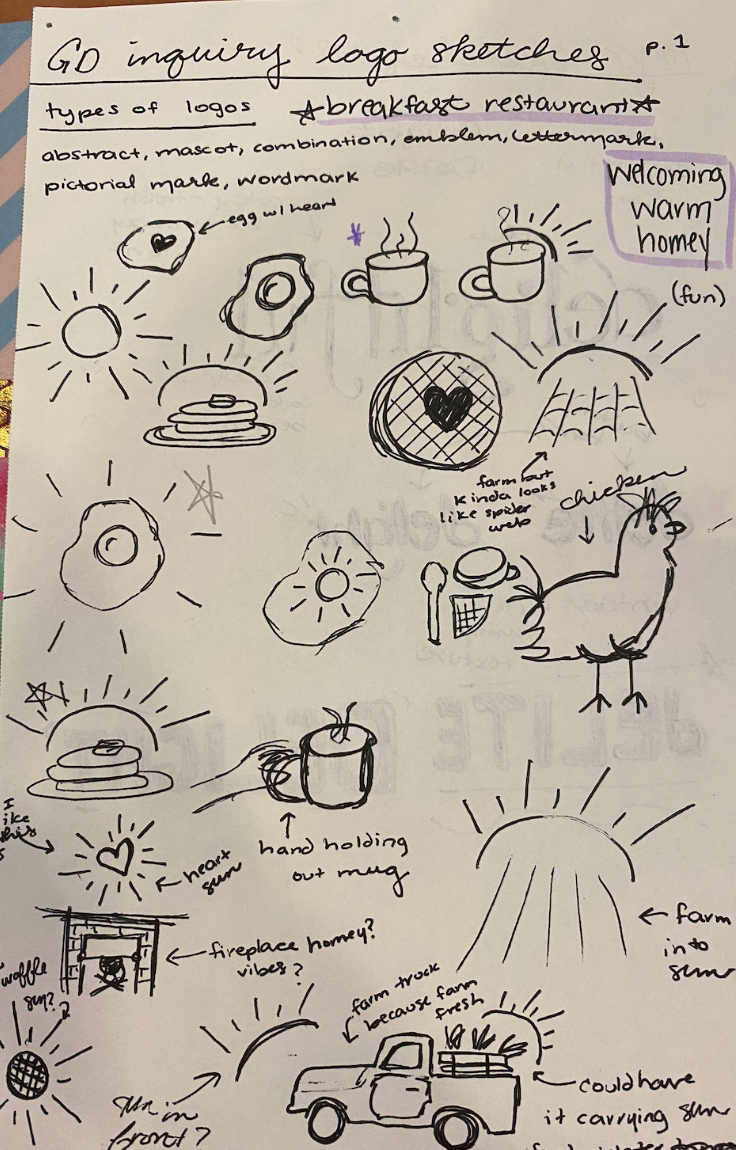 GD inquiry logo sketches p. 1
types of logos ☆breakfast restaurant☆
abstract, mascot, combination, emblem, lettermark,
pictorial mark, wordmark
Welcoming
warm
homey
(fun)
egg w/ heart
farm but
kinda looks
like spider
web
chicken
I
like
this
heart
sun
hand holding
out mug
farm
into
sun
fireplace homey?
vibes?
waffle
sun?
farm truck
because farm
fresh
sun in
front?
could have
it carrying sun